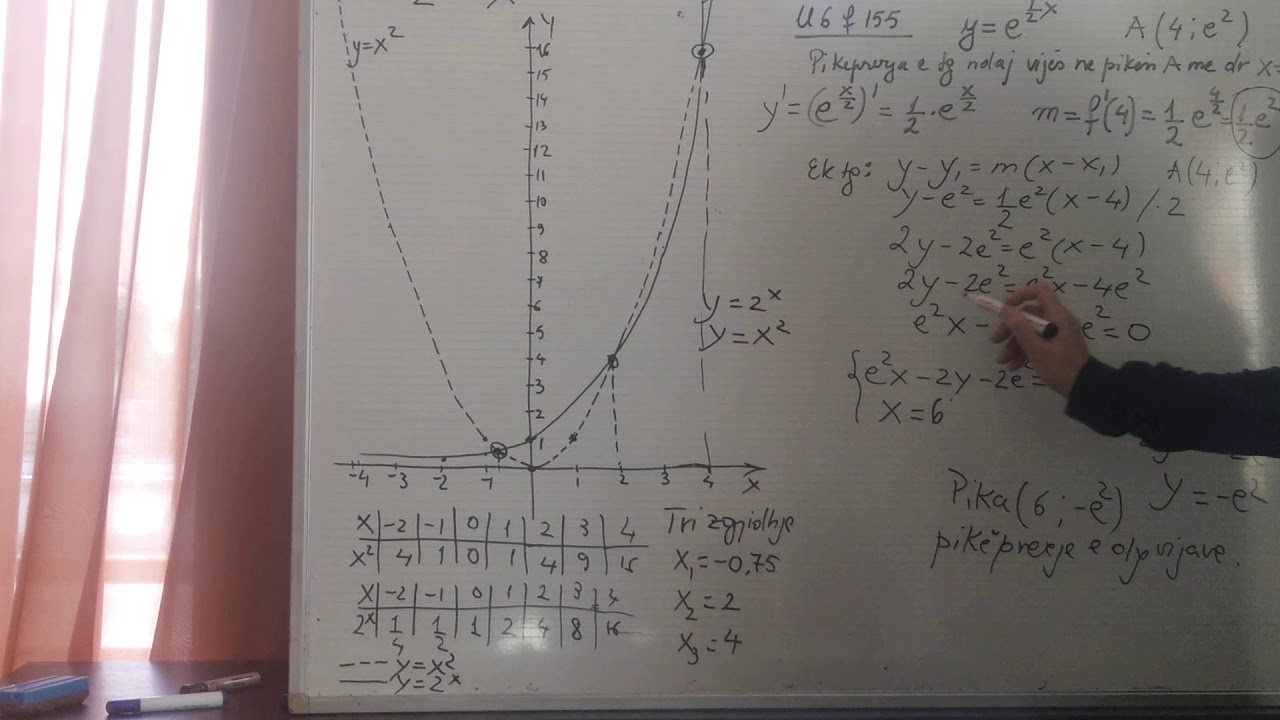 y=x²
Y
16
15
14
13
12
11
10
9
8
7
6
5
4
3
2
1
-4 -3 -2 -1 1 2 3 4 X
y=2ˣ
y=x²
X -2 -1 0 1 2 3 4
X² 4 1 0 1 4 9
X -2 -1 0 1 2 3
2ˣ 1/4 1/2 1 2 4 8 16
--- y=x²
— y=2ˣ
Tri zgjidhje
X₁=-0,75
X₂=2
X₃=4
U6 f 155 y=e^(1/2 x) A(4;e²)
Pikeprerja e tg ndaj vijës ne pikën A me dr x=
y'=(e^(x/2))'=1/2·e^(x/2) m=f'(4)=1/2 e^(4/2)=1/2 e²
Ek tg: y-y₁=m(x-x₁) A(4;e²)
y-e²=1/2 e²(x-4) /·2
2y-2e²=e²(x-4)
2y-2e²=e²x-4e²
e²x- e²=0
{e²x-2y-2e²=
x=6
Pika(6;-e²) y=-e²
pikëprerje e dy vijave.